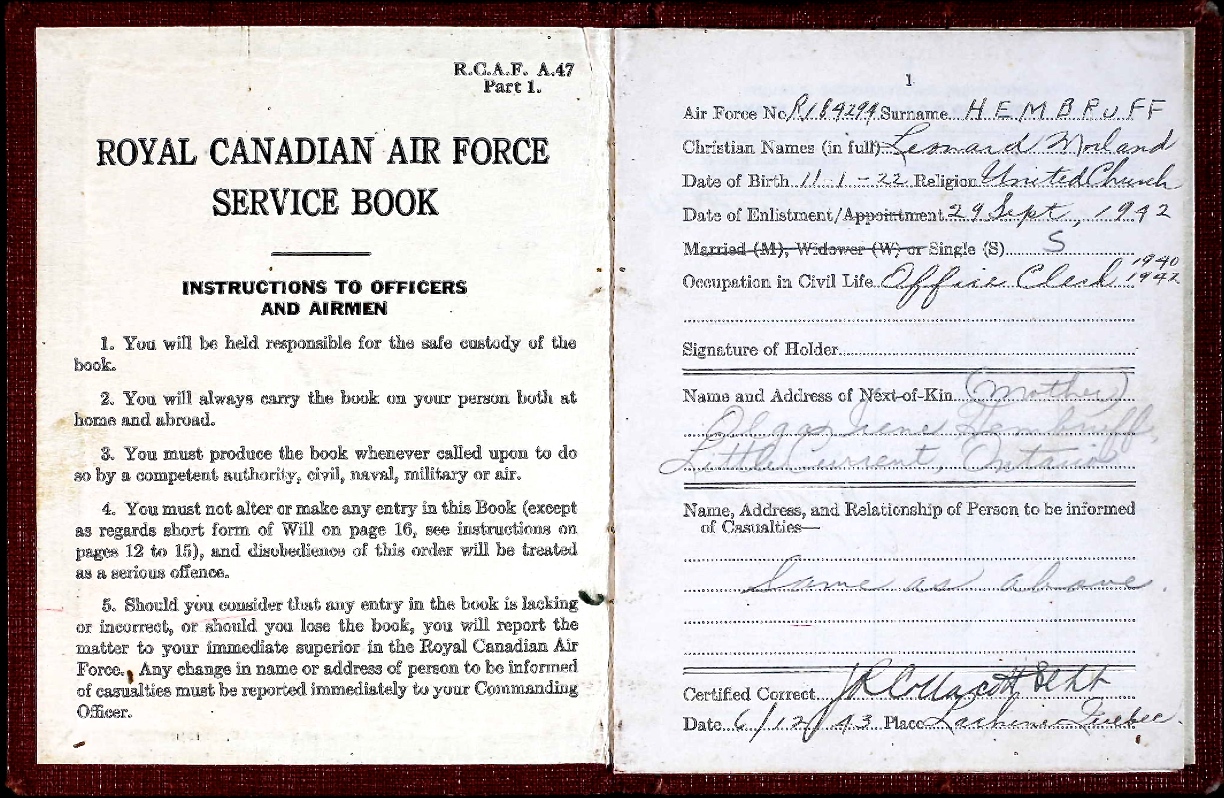 R.C.A.F. A.47
Part 1.
ROYAL CANADIAN AIR FORCE
SERVICE BOOK
INSTRUCTIONS TO OFFICERS
AND AIRMEN
1. You will be held responsible for the safe custody of the
book.
2. You will always carry the book on your person both at
home and abroad.
3. You must produce the book whenever called upon to do
so by a competent authority, civil, naval, military or air.
4. You must not alter or make any entry in this Book (except
as regards short form of Will on page 16, see instructions on
pages 12 to 15), and disobedience of this order will be treated
as a serious offence.
5. Should you consider that any entry in the book is lacking
or incorrect, or should you lose the book, you will report the
matter to your immediate superior in the Royal Canadian Air
Force. Any change in name or address of person to be informed
of casualties must be reported immediately to your Commanding
Officer.
1
Air Force No. R184294 Surname HEMBRUFF
Christian Names (in full) Leonard Morland
Date of Birth 11-1-22 Religion United Church
Date of Enlistment/Appointment 29 Sept, 1942
Married (M), Widower (W) or Single (S) S
Occupation in Civil Life Office Clerk 1940 1942
Signature of Holder
Name and Address of Next-of-Kin (Mother)
Olga Irene Hembruff,
Little Current, Ontario
Name, Address, and Relationship of Person to be informed
of Casualties—
Same as above.
Certified Correct
Date 6/12/43 Place Lachine Quebec.